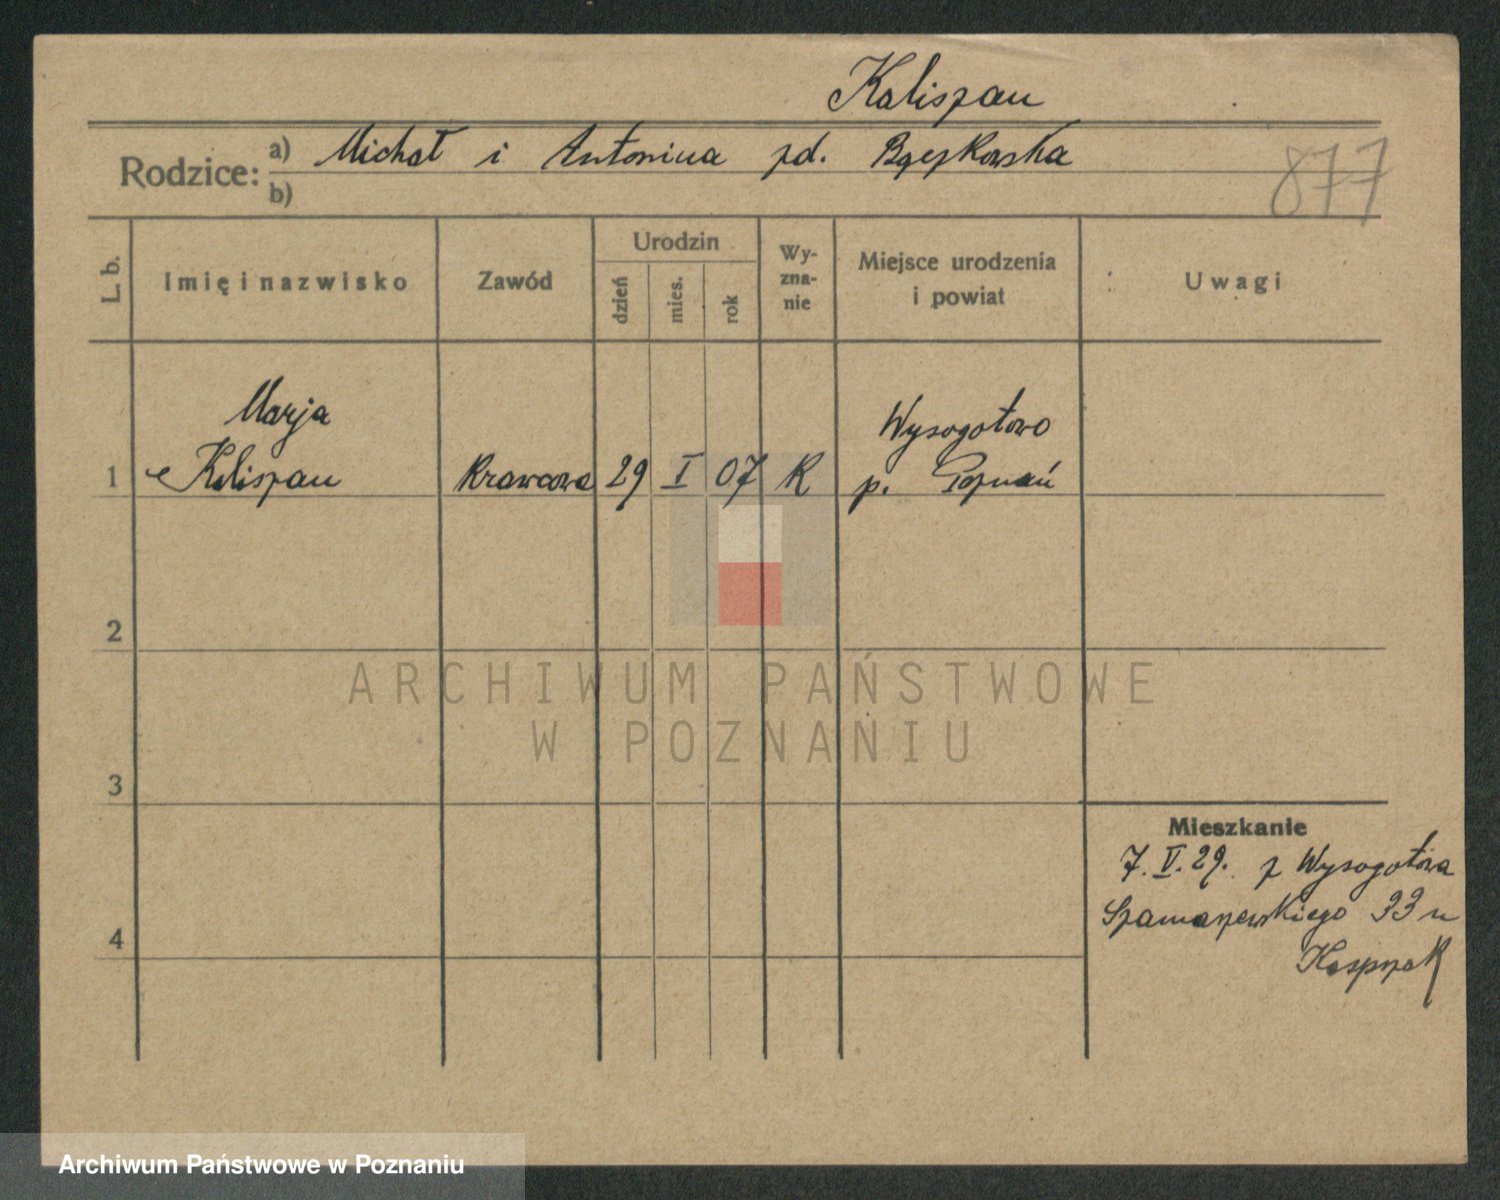 Kaliszan
Rodzice: a) Michał i Antonina zd. Bączkowska
b)
877
L. b.
Imię i nazwisko
Zawód
Urodzin
dzień
mies.
rok
Wy-
zna-
nie
Miejsce urodzenia
i powiat
Uwagi
Marja
1 Kaliszan Krawcowa 29 I 07 K
Wysogotowo
p. Poznań
2
3
4
ARCHIWUM PAŃSTWOWE
W POZNANIU
Mieszkanie
7.V.29. z Wysogotowa
Szamarzewskiego 33 u
Kaspzak
Archiwum Państwowe w Poznaniu